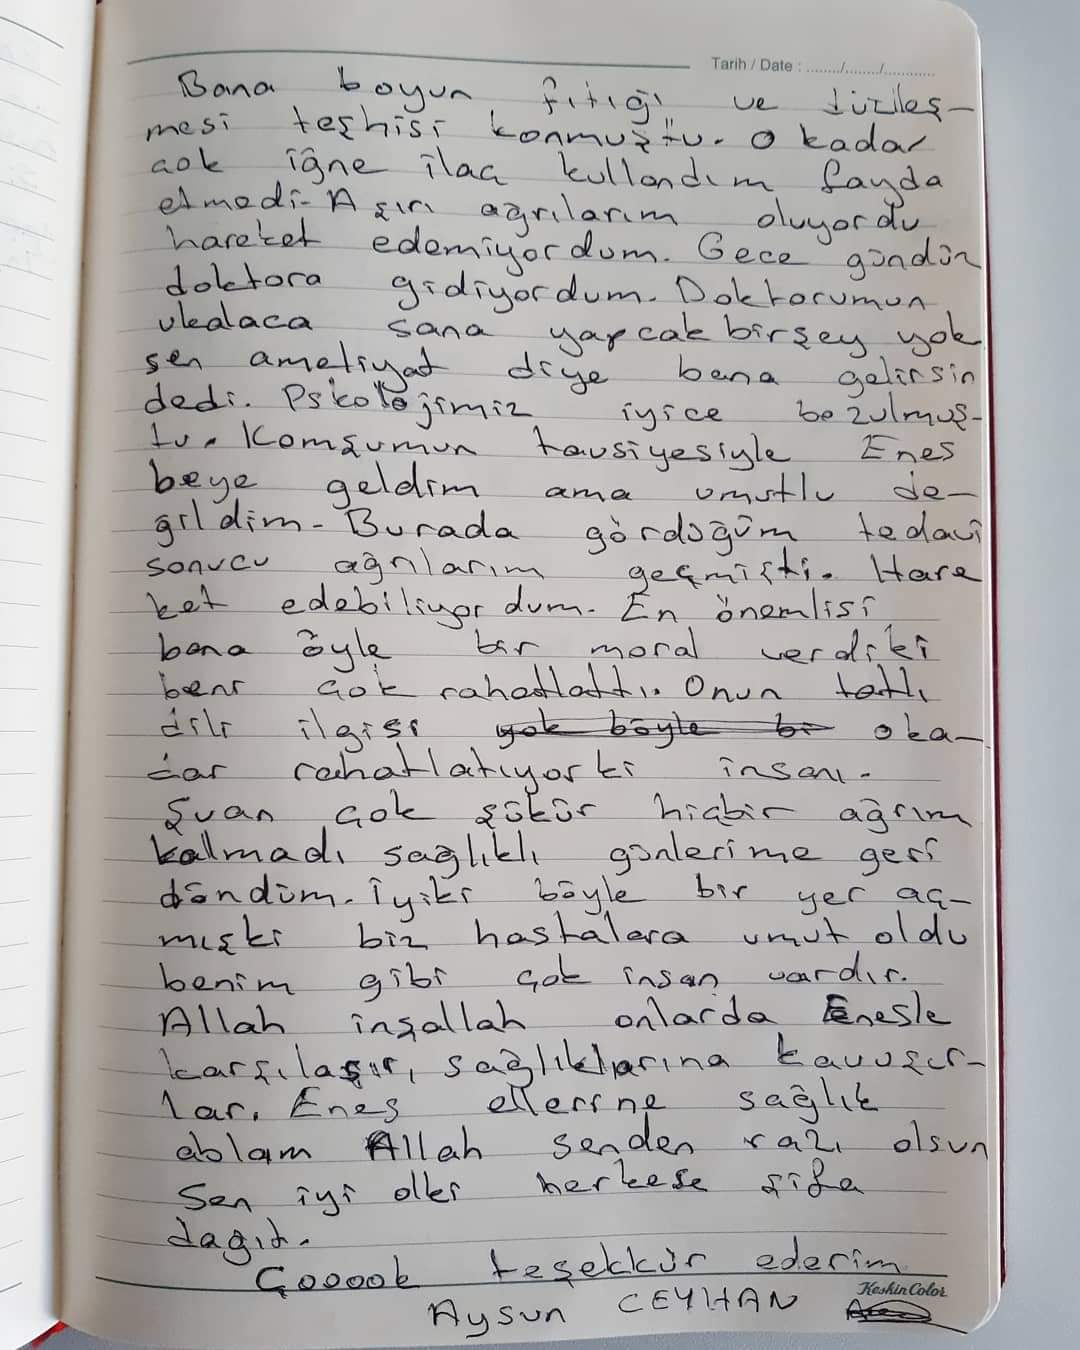 Tarih / Date : ......../......../............
Bana boyun fıtığı ve düzleş-
mesi teşhisi konmuştu. O kadar
çok iğne ilaç kullandım fayda
etmedi. Aşırı ağrılarım oluyordu
hareket edemiyordum. Gece gündüz
doktora gidiyordum. Doktorumun
ukalaca sana yapcak birşey yok
sen ameliyat diye bana gelirsin
dedi. Pskolojimiz iyice bozulmuş-
tu. Komşumun tavsiyesiyle Enes
beye geldim ama umutlu de-
ğildim. Burada gördüğüm tedavi
sonucu ağrılarım geçmişti. Hare
ket edebiliyordum. En önemlisi
bana öyle bir moral verdiki
beni çok rahatlattı. Onun tatlı
dili ilgisi yok böyle bi oka-
dar rahatlatıyorki insanı.
Şuan çok şükür hiçbir ağrım
kalmadı sağlıklı günlerime geri
döndüm. İyiki böyle bir yer aç-
mışki biz hastalara umut oldu
benim gibi çok insan vardır.
Allah inşallah onlarda Enesle
karşılaşır, sağlıklarına kavuşur-
lar. Enes ellerine sağlık
ablam Allah senden razı olsun
Sen iyi olki herkese şifa
dağıt.
Çooook teşekkür ederim
KeskinColor
Aysun CEYHAN